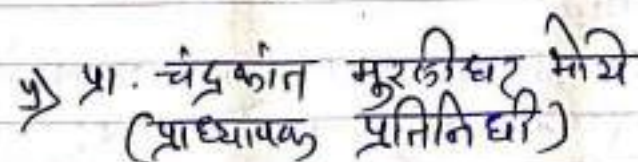 ५) प्रा. चंद्रकांत मुरलीधर मोये
(प्राध्यापक प्रतिनिधी)